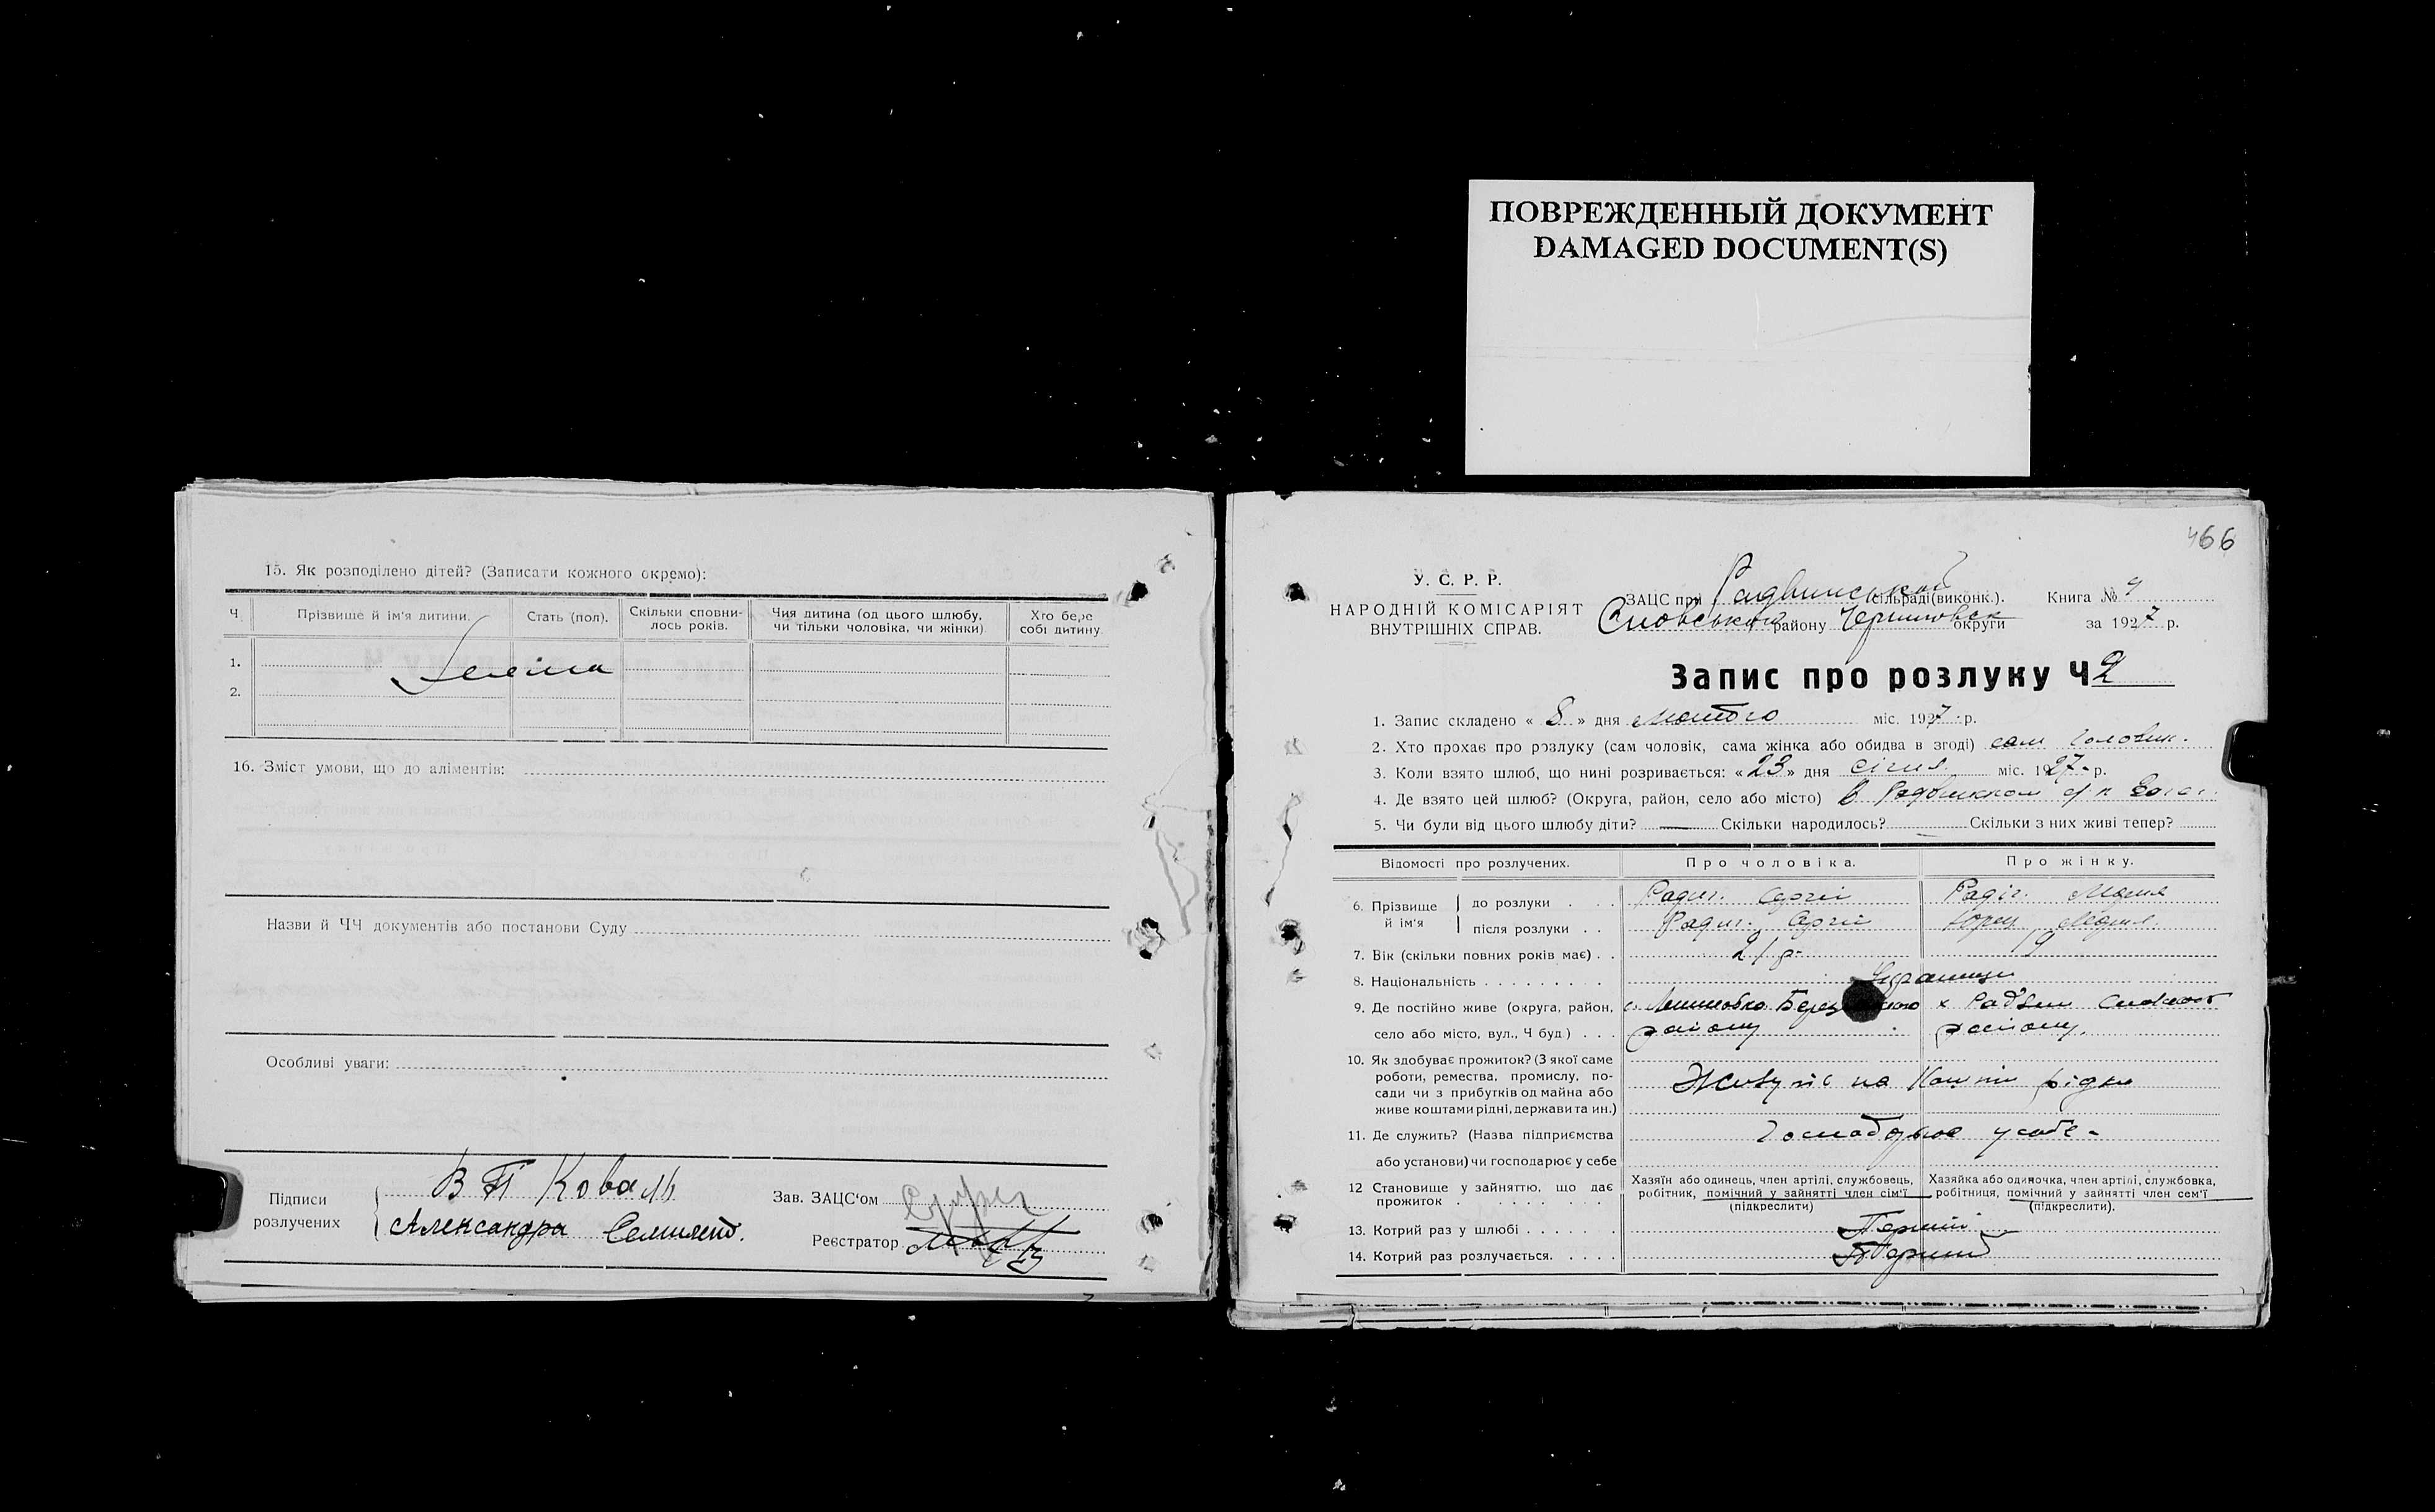 ПОВРЕЖДЕННЫЙ ДОКУМЕНТ
DAMAGED DOCUMENT(S)
15. Як розподілено дітей? (Записати кожного окремо):
Ч. Прізвище й ім'я дитини. Стать (пол). Скільки сповни- лось років. Чия дитина (од цього шлюбу, чи тільки чоловіка, чи жінки) Хто бере собі дитину.
1.
2.
16. Зміст умови, що до аліментів:
Назви й ЧЧ документів або постанови Суду
Особливі уваги:
Підписи розлучених
В П Коваль
Александра
Зав. ЗАЦС'ом
Реєстратор
466
У. С. Р. Р.
НАРОДНІЙ КОМІСАРІЯТ
ВНУТРІШНІХ СПРАВ.
ЗАЦС при сільраді(виконк.). Книга №
Сновського району округи за 1927 р.
Запис про розлуку Ч 2
1. Запис складено « 8 » дня лютого міс. 1927 р.
2. Хто прохає про розлуку (сам чоловік, сама жінка або обидва в згоді) сам чоловік.
3. Коли взято шлюб, що нині розривається: « 23 » дня січня міс. 1927 р.
4. Де взято цей шлюб? (Округа, район, село або місто) в
5. Чи були від цього шлюбу діти? — Скільки народилось? Скільки з них живі тепер?
Відомості про розлучених. Про чоловіка. Про жінку.
6. Прізвище й ім'я
до розлуки Сергій Марія
після розлуки Сергій Марія
7. Вік (скільки повних років має) 21 р. 19
8. Національність Українці
9. Де постійно живе (округа, район, село або місто, вул., Ч буд)
району району.
10. Як здобуває прожиток? (З якої саме
роботи, ремества, промислу, по-
сади чи з прибутків од майна або
живе коштами рідні, держави та ин.)
на кошти рідні
11. Де служить? (Назва підприємства
або установи) чи господарює у себе
у себе
12 Становище у зайняттю, що дає
прожиток
Хазяїн або одинець, член артілі, службовець,
робітник, помічний у зайнятті член сім'ї
(підкреслити)
Хазяйка або одиночка, член артілі, службовка,
робітниця, помічний у зайнятті член сем'ї
(підкреслити).
13. Котрий раз у шлюбі Перший
14. Котрий раз розлучається. Перший